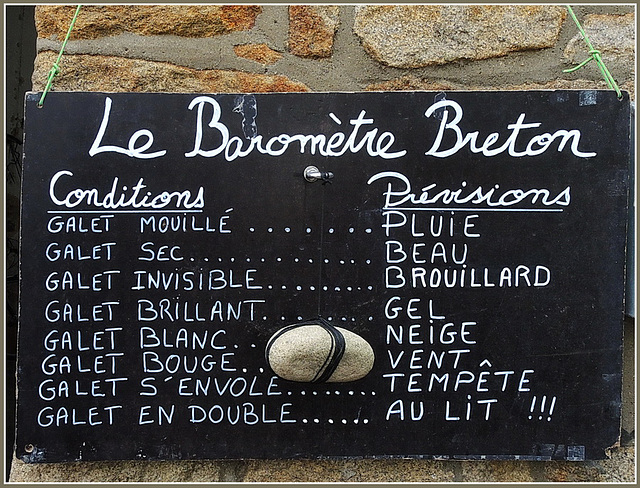 Le Baromètre Breton
Conditions Prévisions
GALET MOUILLÉ ........ PLUIE
GALET SEC............... BEAU
GALET INVISIBLE......... BROUILLARD
GALET BRILLANT........ GEL
GALET BLANC.. NEIGE
GALET BOUGE.. VENT
GALET S'ENVOLE........ TEMPÊTE
GALET EN DOUBLE...... AU LIT !!!